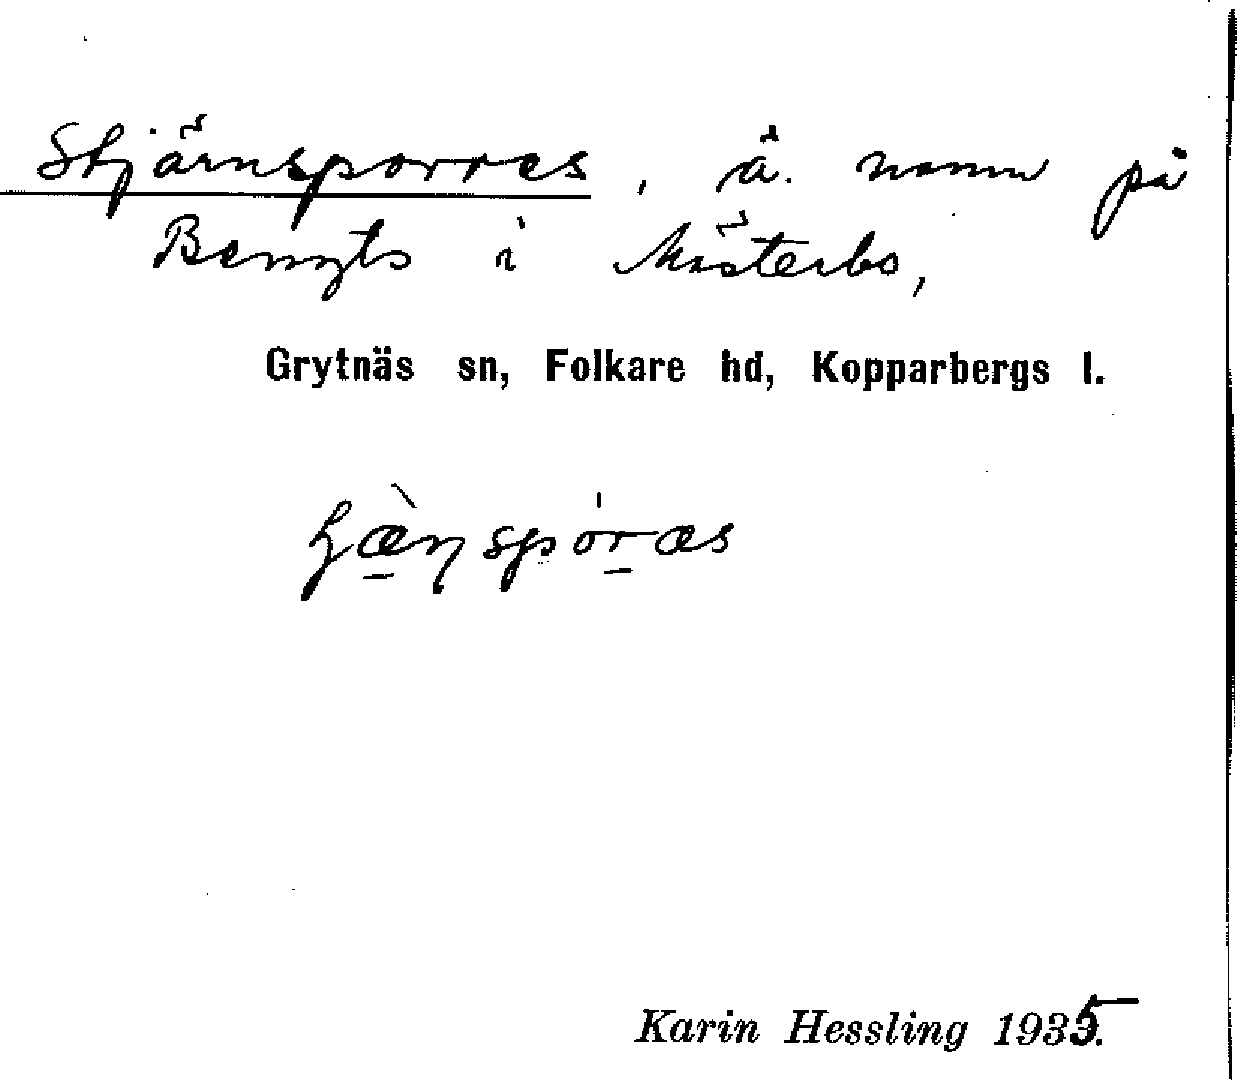 Stjärnsporres, ä. namn på
Bengts i Mästerbo,
Grytnäs sn, Folkare hd, Kopparbergs l.
Karin Hessling 1935.